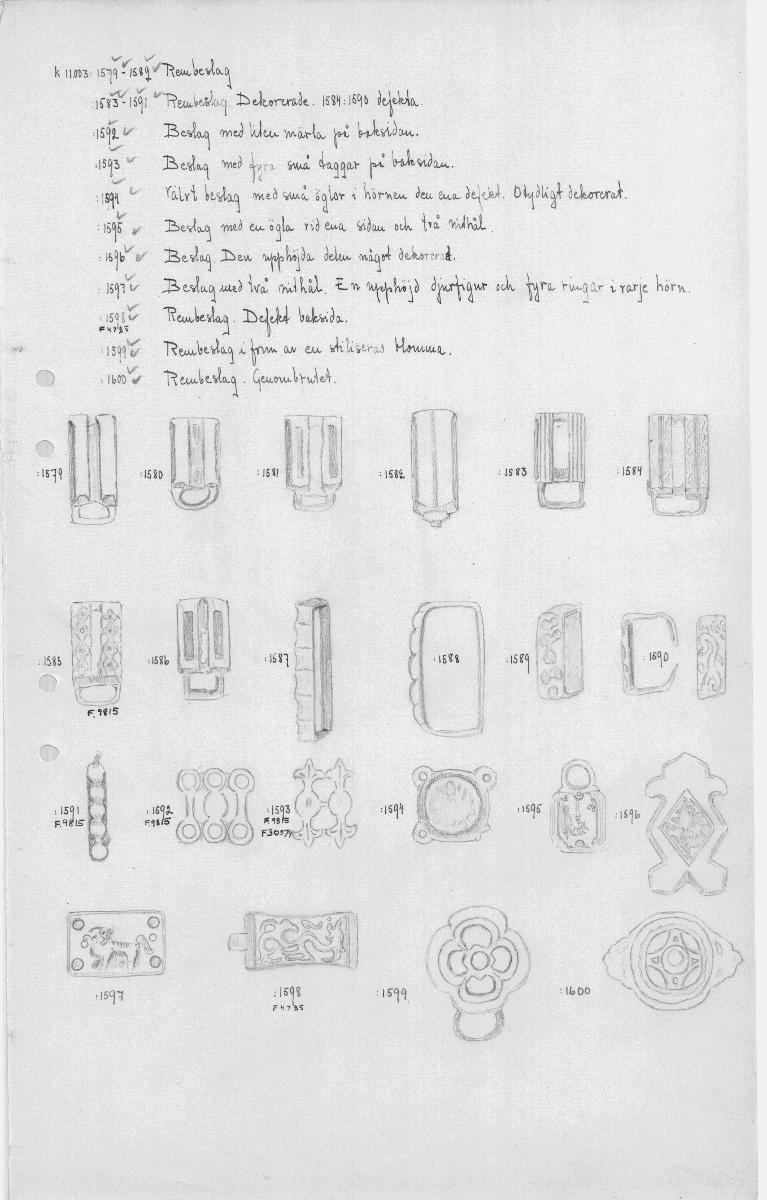 K 11.003: 1579 - 1582 Rembeslag
:1583 - 1591 Rembeslag. Dekorerade. 1584:1590 defekta.
:1592 Beslag med liten märla på baksidan.
:1593 Beslag med fyra små taggar på baksidan.
:1594 Välvt beslag med små öglor i hörnen den ena defekt. Otydligt dekorerat.
:1595 Beslag med en ögla vid ena sidan och två nithål.
:1596 Beslag. Den upphöjda delen något dekorerad.
:1597 Beslag med två nithål. En upphöjd djurfigur och fyra ringar i varje hörn.
:1598 Rembeslag. Defekt baksida.
F 4785
:1599 Rembeslag i form av en stiliserad blomma.
:1600 Rembeslag. Genombrutet.
:1579 :1580 :1581 :1582 :1583 :1584
:1585 :1586 :1587 :1588 :1589 :1590
F.9815
:1591 :1592 :1593 :1594 :1595 :1596
F.9815 F.9815 F.9815
:1597 :1598 :1599 :1600
F 4785